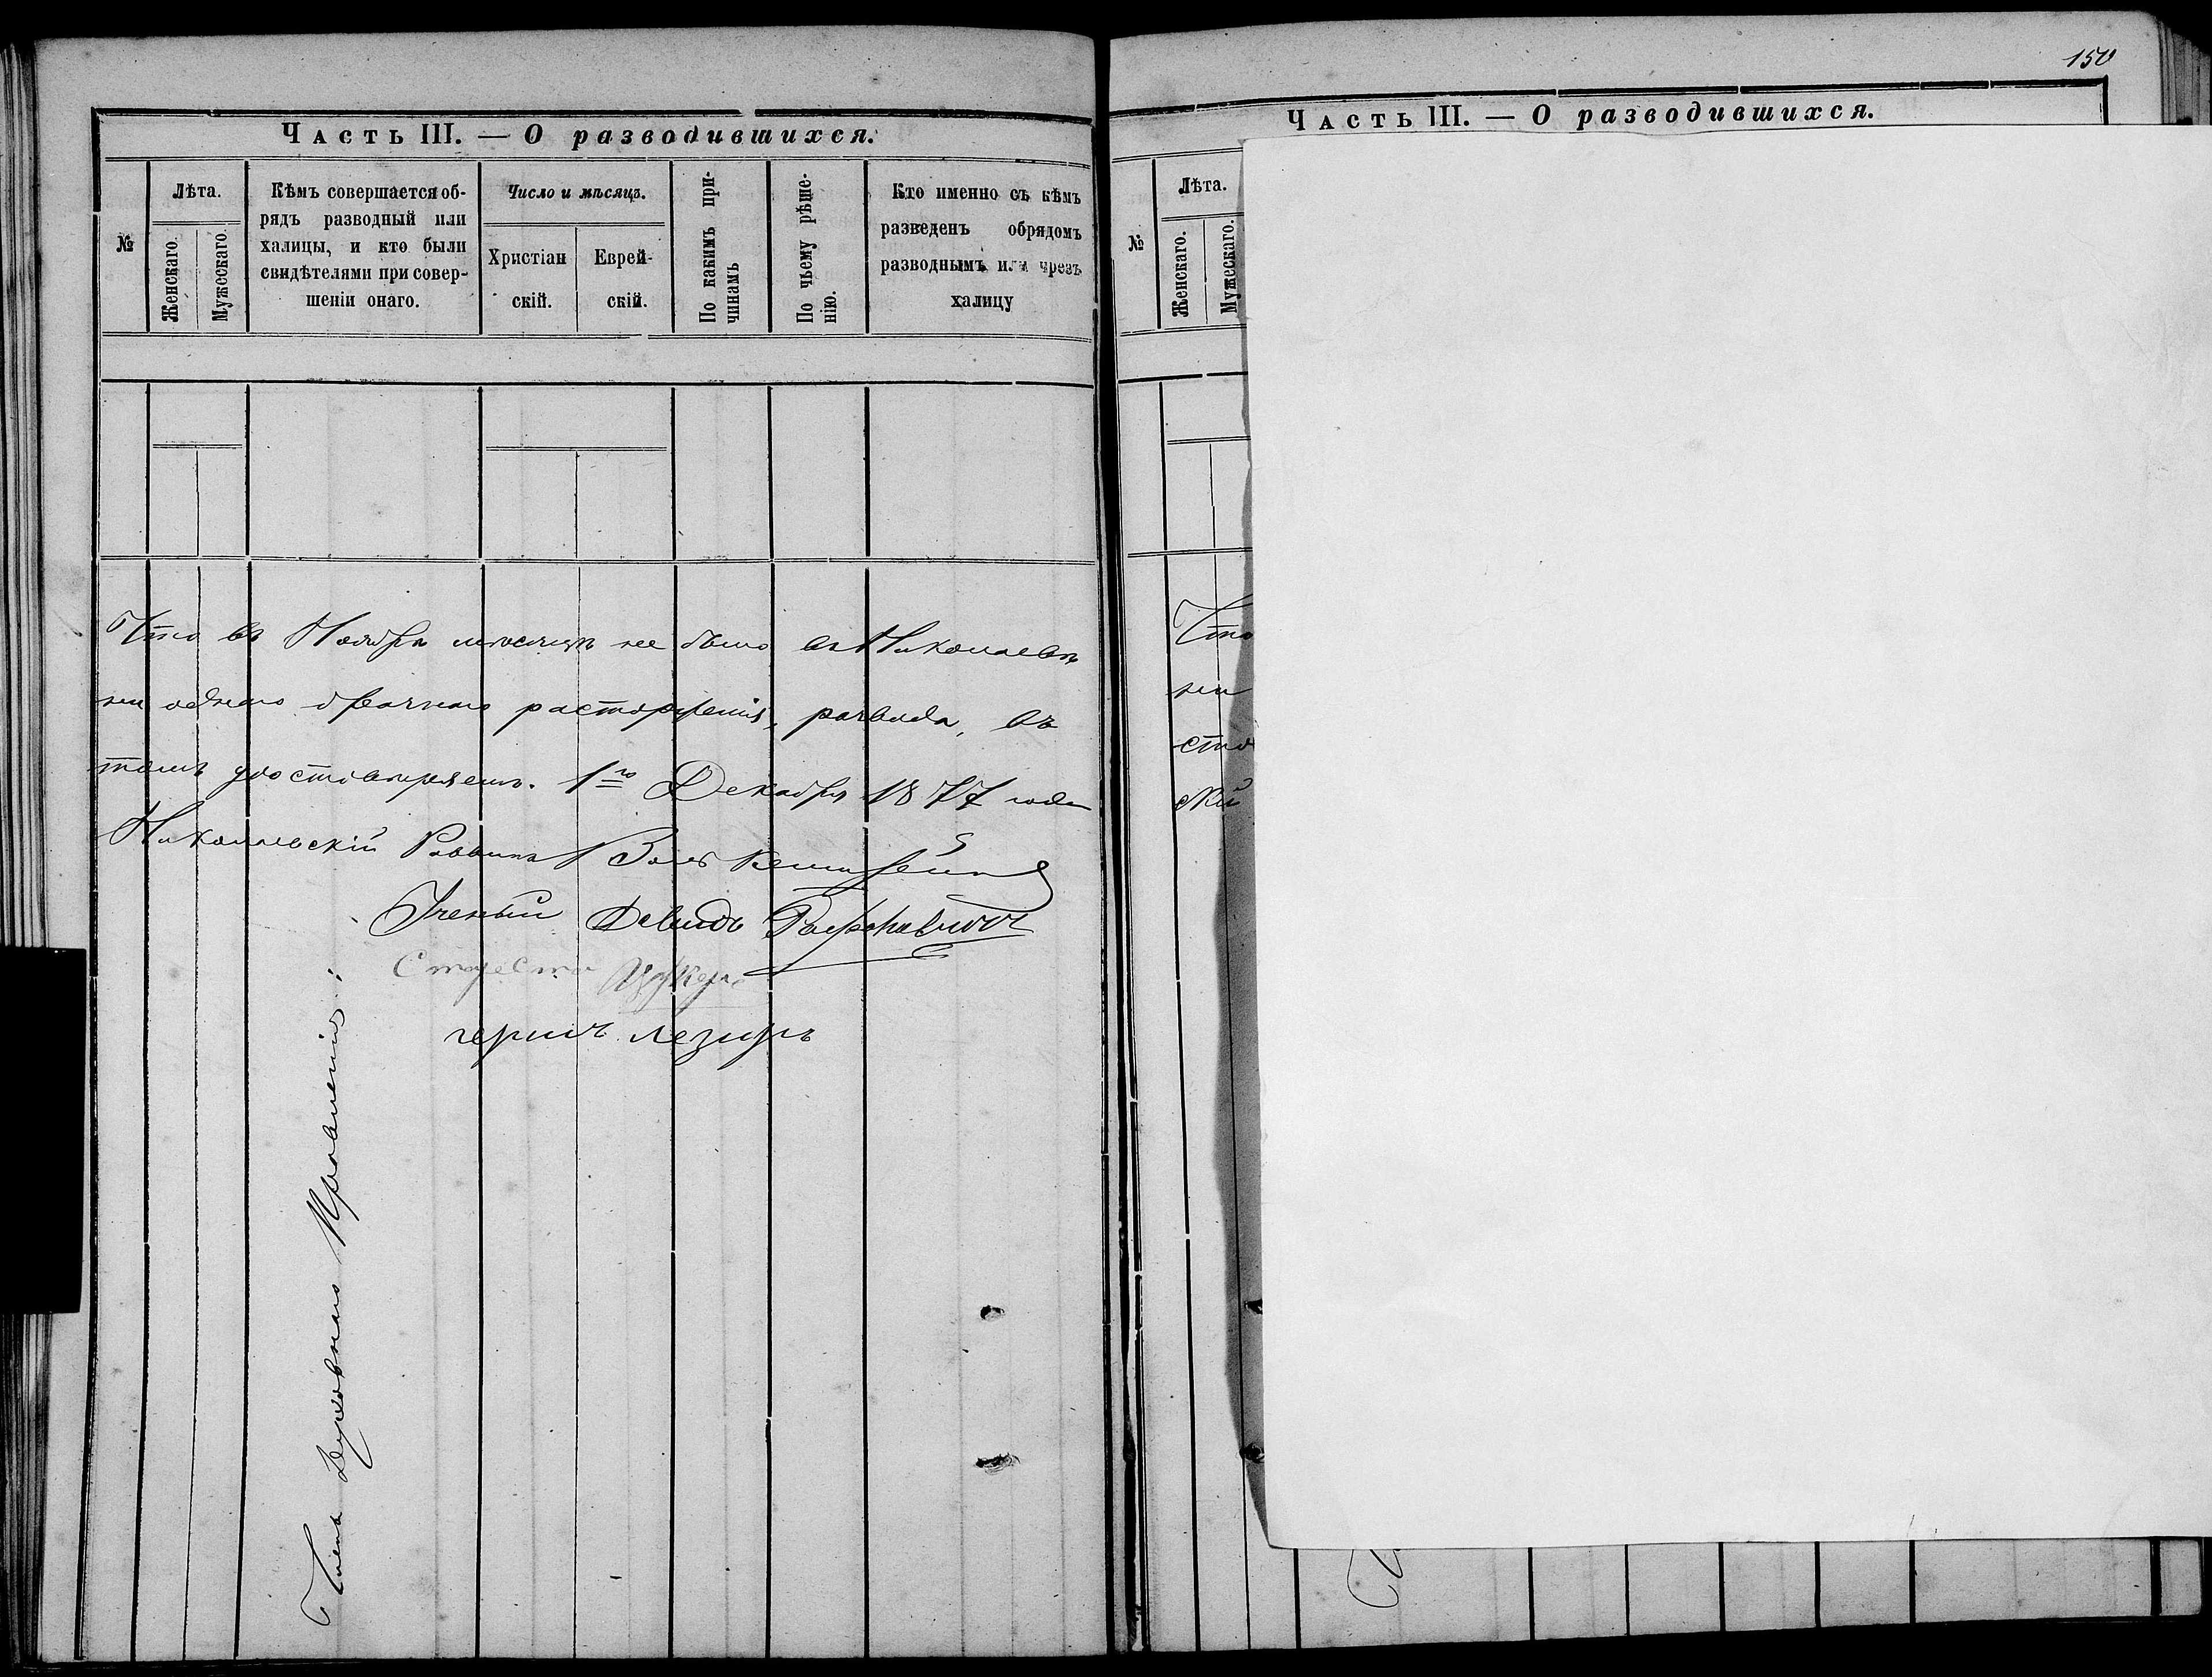 Часть III. — О разводившихся.
№
Лѣта.
Женскаго.
Мужескаго.
Кѣмъ совершается об-
рядъ разводный или
халицы, и кто были
свидѣтелями при совер-
шеніи онаго.
Число и мѣсяцъ.
Христіан
скій.
Еврей-
скій.
По какимъ при-
чинамъ
По чьему рѣше-
нію.
Кто именно съ кѣмъ
разведенъ обрядомъ
разводнымъ или чрезъ
халицу
Что въ Ноябрѣ мѣсяцѣ не было въ Николаевѣ
ни однаго брачнаго расторженія, развода, въ
томъ удостовѣряемъ. 1го Декабря 1877 года
Николаевскій Раввинъ
Ученый Давидъ
Староста Цукеръ
Члены Духовнаго Правленія:
150
Часть III. — О разводившихся.
№
Лѣта.
Женскаго.
Мужескаго.
Что
ни
сто
скій